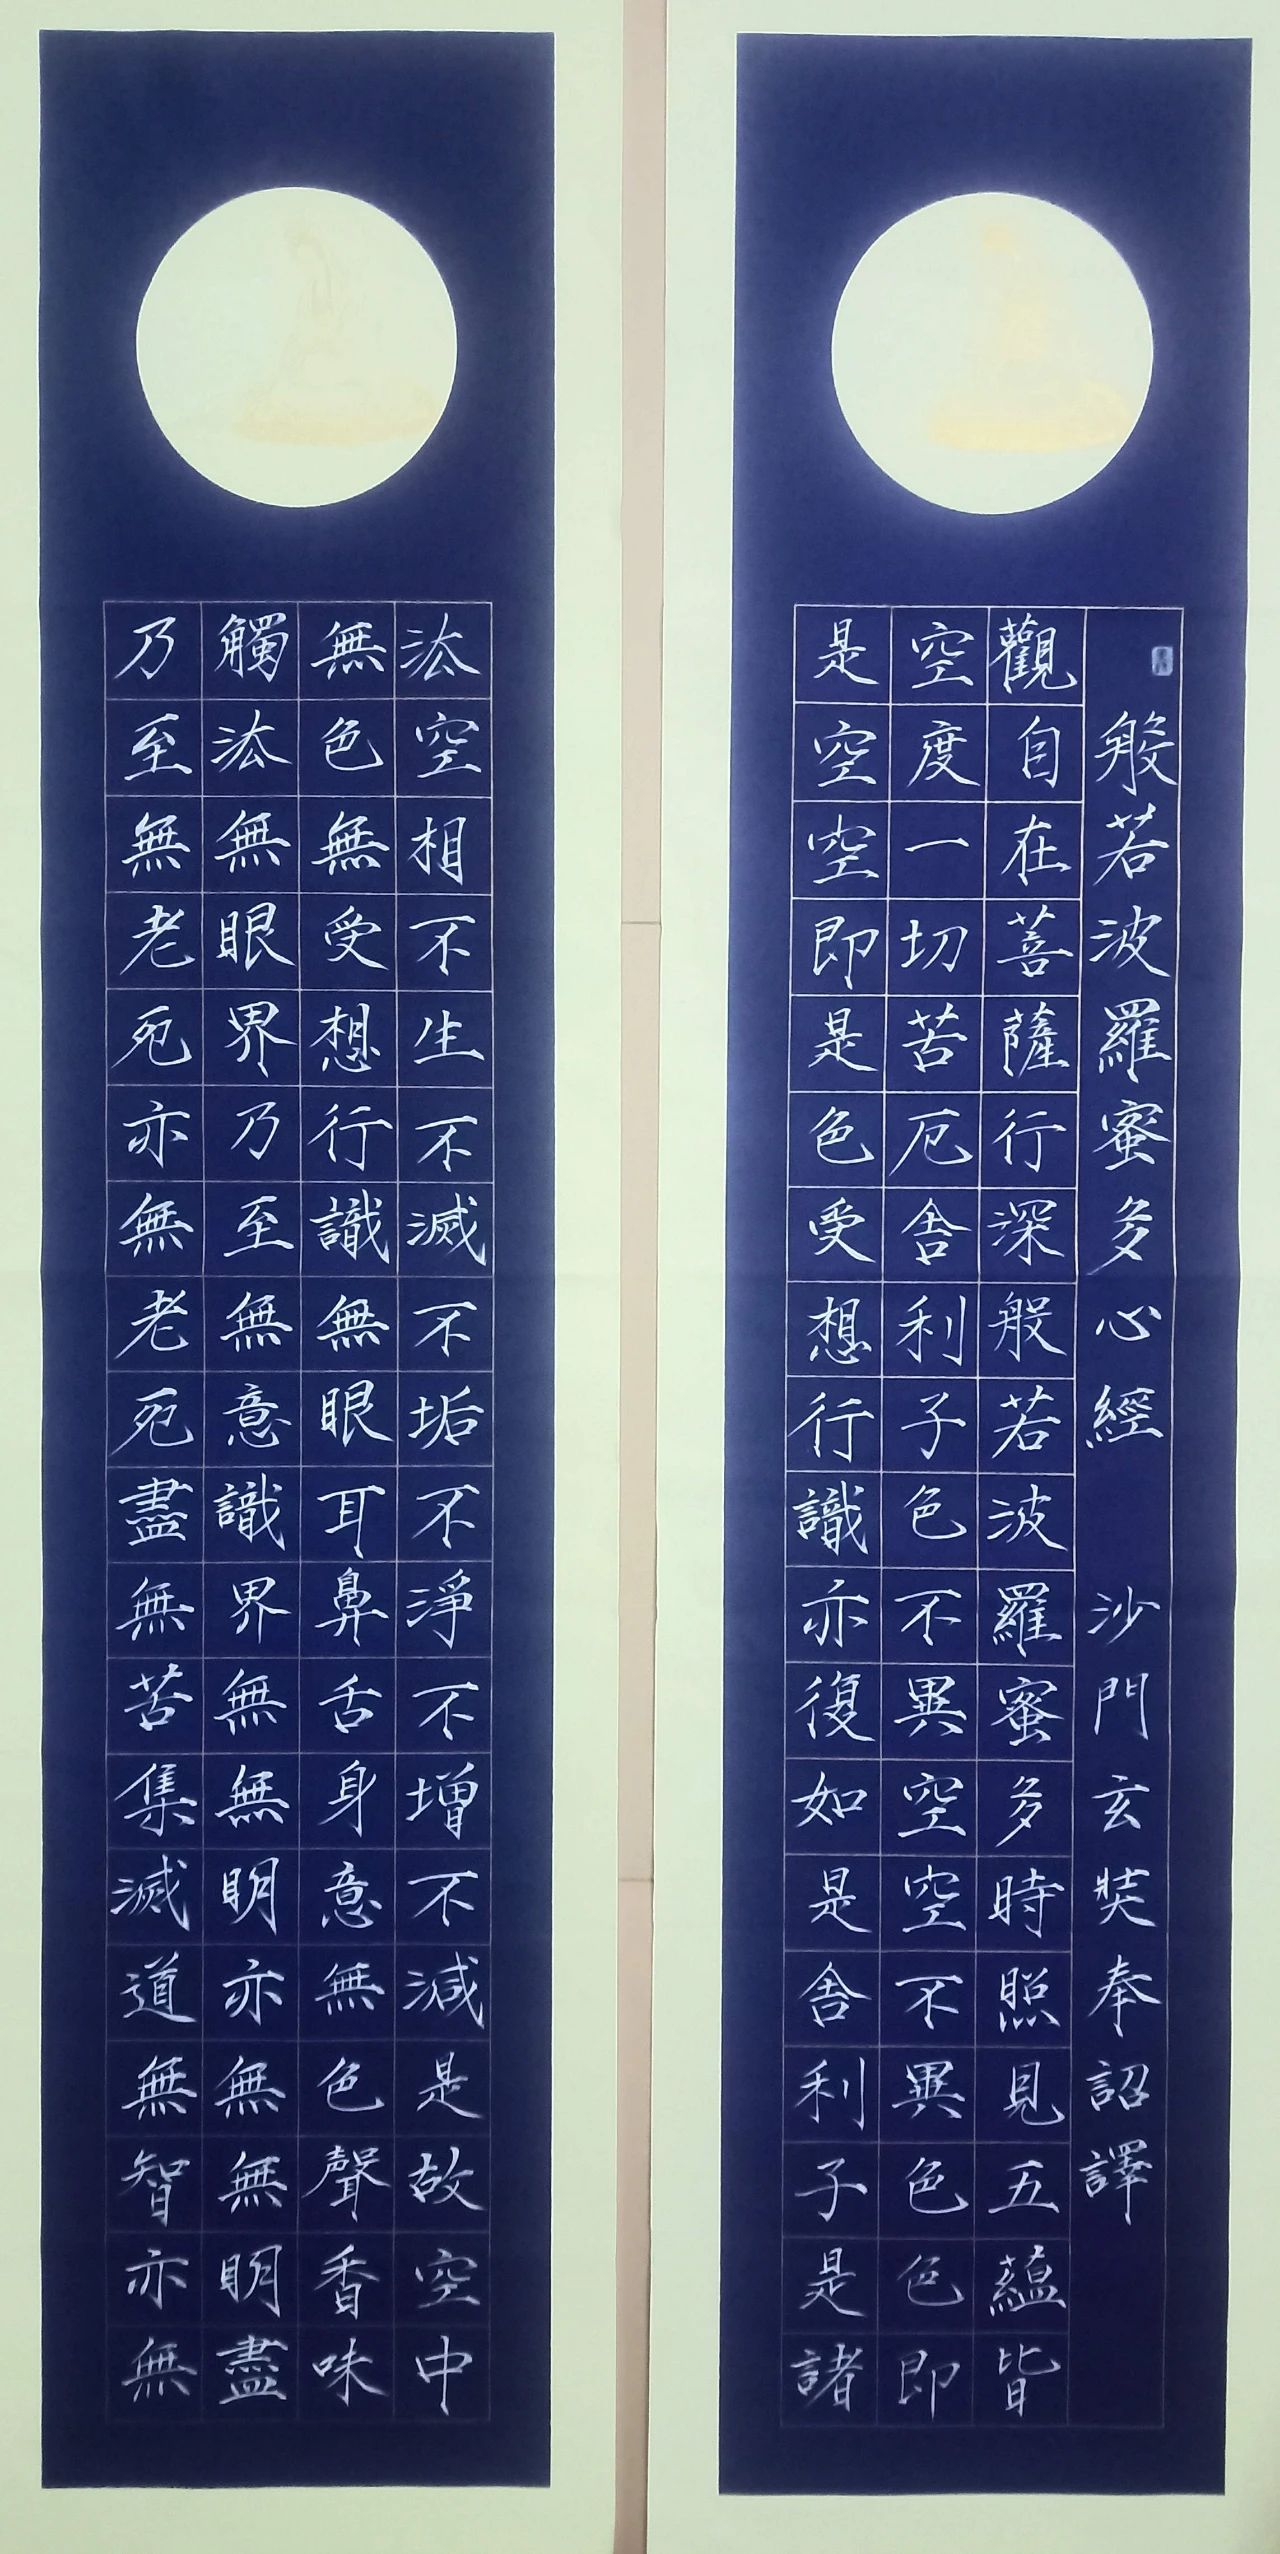 般若波羅蜜多心經 沙門玄奘奉詔譯
觀自在菩薩行深般若波羅蜜多時照見五蘊皆
空度一切苦厄舍利子色不異空空不異色色即
是空空即是色受想行識亦復如是舍利子是諸
法空相不生不滅不垢不淨不增不減是故空中
無色無受想行識無眼耳鼻舌身意無色聲香味
觸法無眼界乃至無意識界無無明亦無無明盡
乃至無老死亦無老死盡無苦集滅道無智亦無